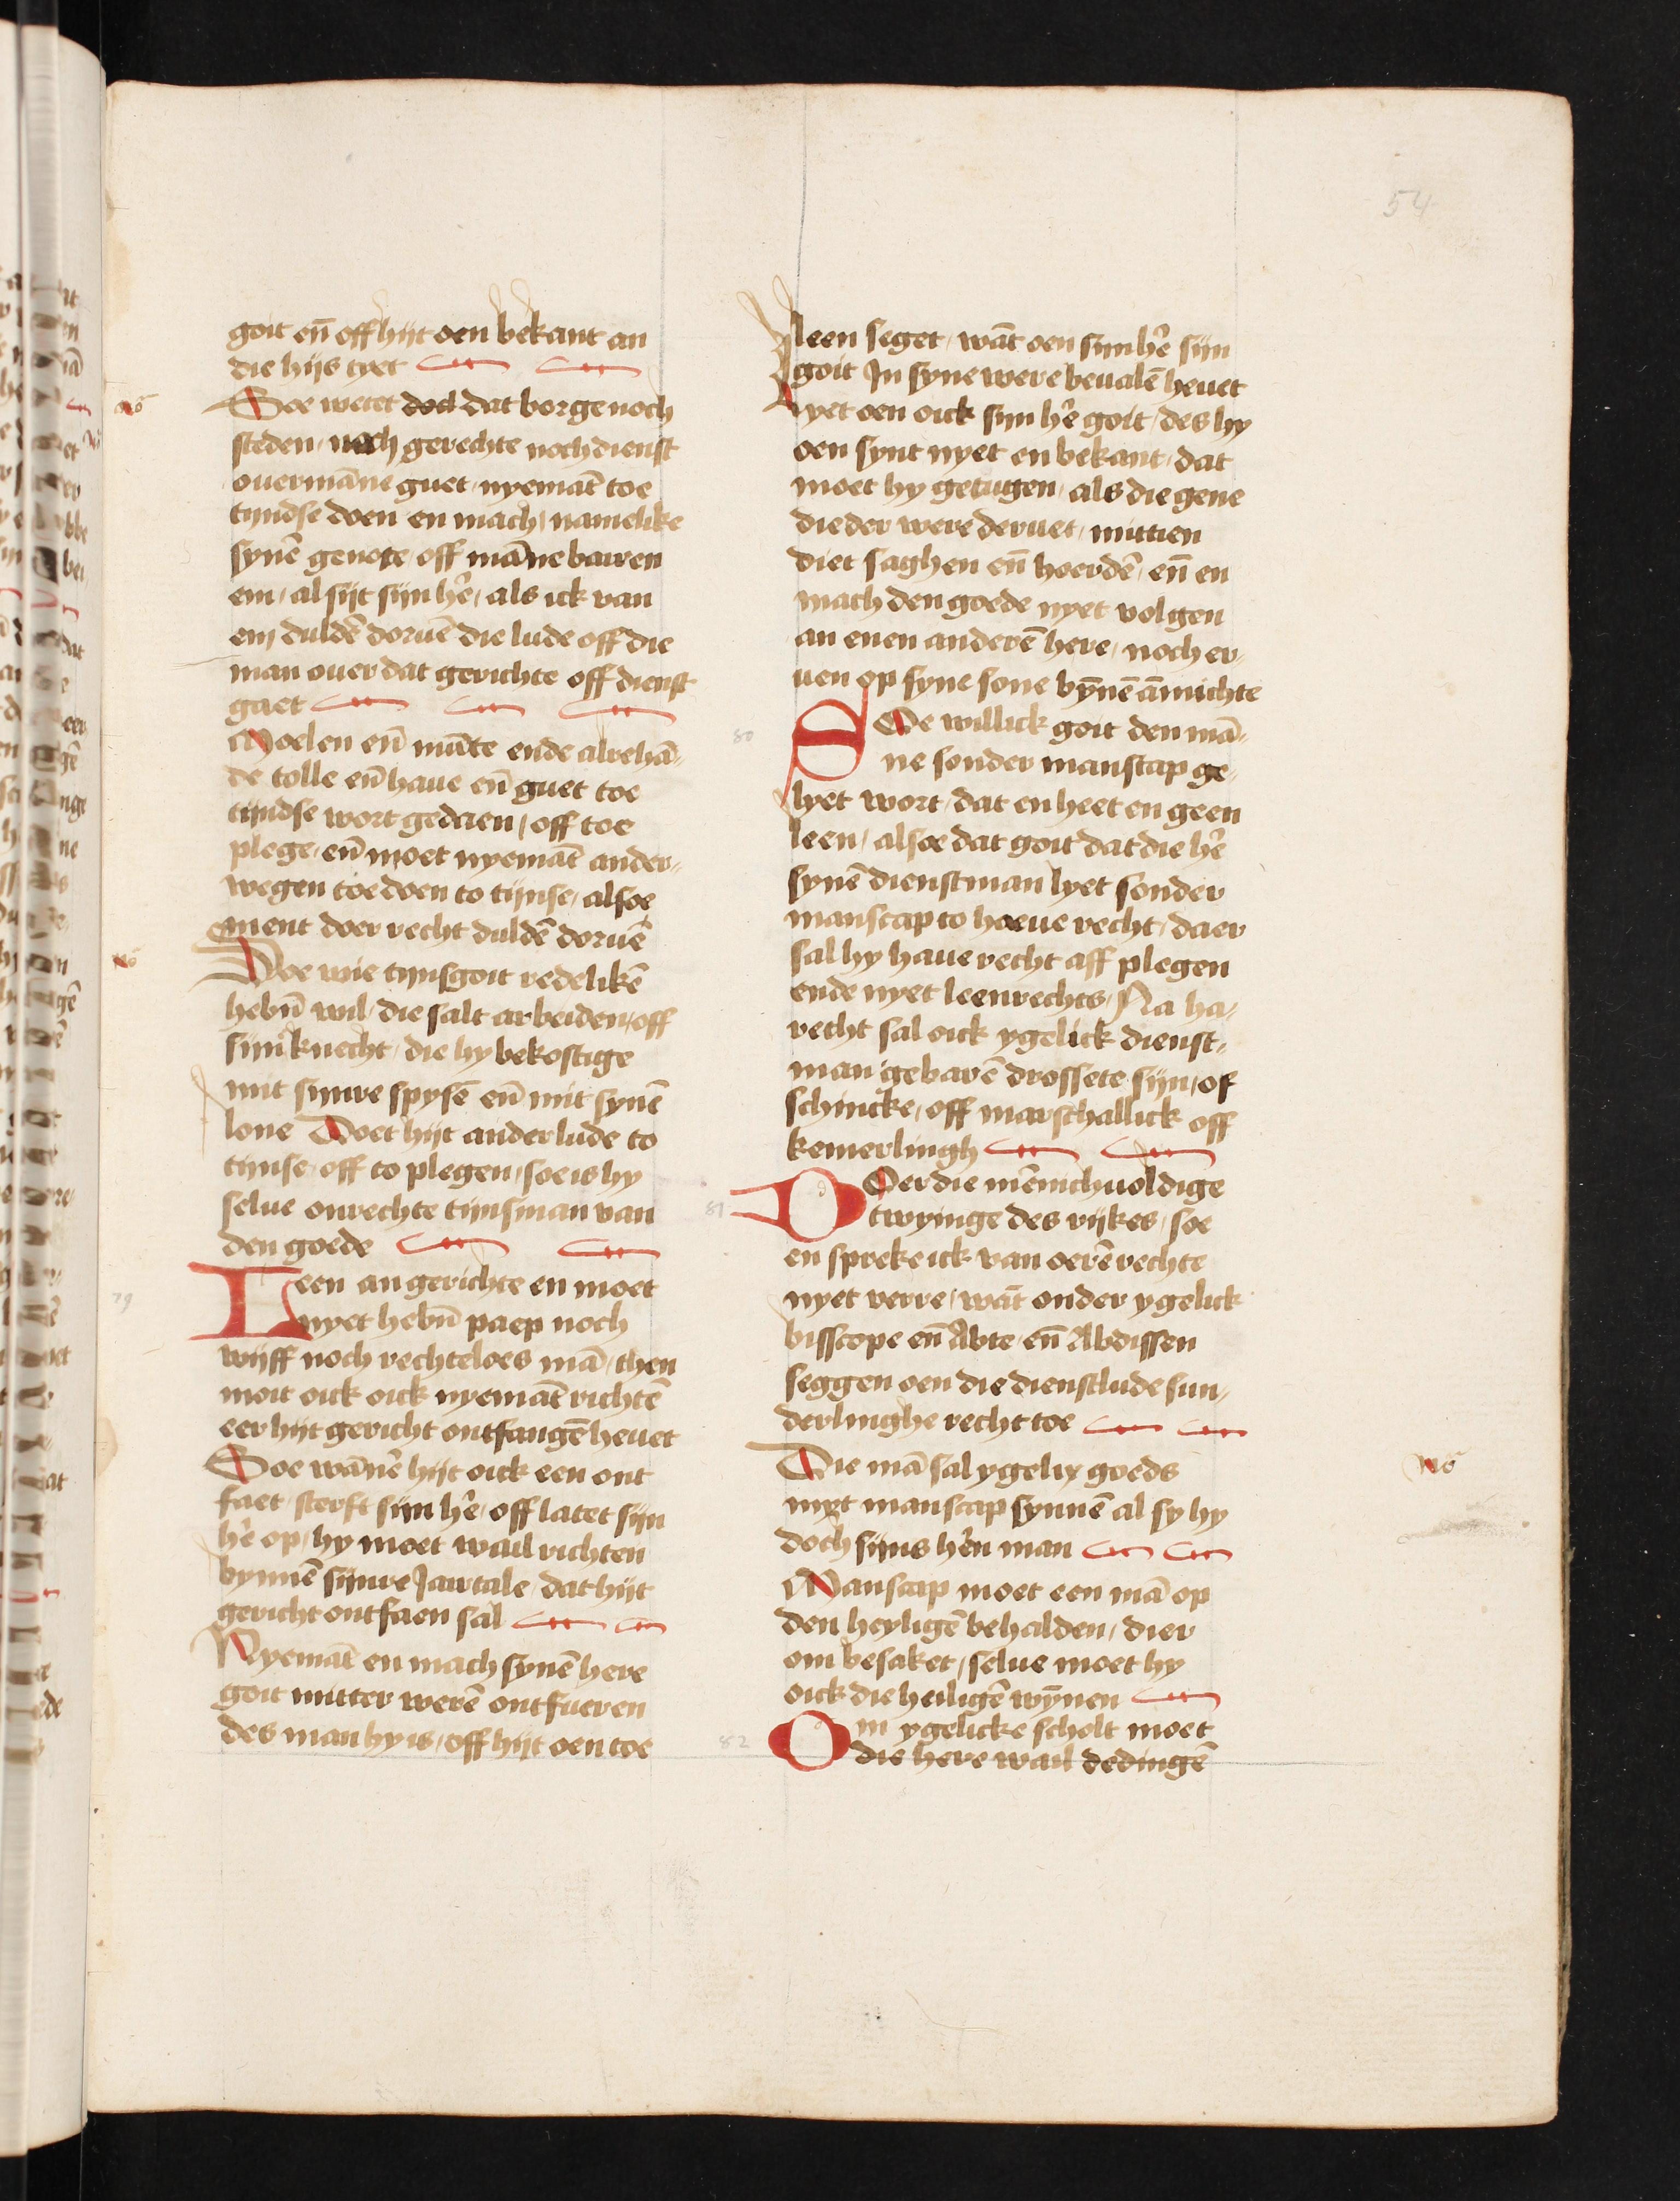 54
goit en̄ off hijt oen bekant an
die hijs tyet
Soe wetet dod dat borge noch
steden noch gerechte noch dienst
ouermāne guet nyemāt toe
tijndse doen en mach namelike
synē genote off māne bauen
em / al sijt sijn hē / als ick van
em duldē doruē die lude off die
man ouer dat gerichte off dienst
gaet
Moelen en̄ mūte ende alrehā
de tolle en̄ haue en̄ guet toe
tijndse wort gedaen / off toe
plege en̄ moet nyemāt ander
wegen toe doen to tijnse / alsoe
ment doer recht duldē doruē
Soe wie tijnsgoit redelikē
hebn̄ wil die salt arbeiden / off
sijn knecht / die hy bekostige
mit sijnre spysē en̄ mit synē
lone Doet hijt ander lude to
tijnse off to plegen / soe is hy
selue onrechte tijnsman van
den goede
79
Leen an gerichte en moet
nyet hebn̄ paep noch
wijff noch rechteloes mā / then
moit oick oick nyemāt richtē
eer hijt gericht ontfangē heuet
Soe wānē hijt oick een ont
faet sterft sijn hē / off latet sijn
hē op / hy moet wail richten
bynnē sijnre Jaertale / dat hijt
gericht ontfaen sal
Nyemāt en mach synē here
goit mitter werē ontfueren
des man hy is / off hijt oen toe
leen seget / wāt oen sijn hē sijn
goit In syne were beualē heuet
lyet oen oick sijn hē goit / des hy
oen synt nyet en bekant / dat
moet hy getugen als die gene
die der were deruet / mittien
diet saghen en̄ hoerdē / en̄ en
mach den goede nyet volgen
an enen anderē here / noch er
uen op syne sone bȳnē āmichte
80
Soe willick goit den mā
ne sonder manscap ge
lyet wort / dat en heet en geen
leen / alsoe dat goit dat die hē
synē dienstman lyet sonder
manscap to hoeue recht / daer
sal hy haue recht aff plegen
ende nyet leenrechts / Na ha
recht sal oick ygelick dienst
man gebarē drossete sijn / of
schincke / off marschallick off
kemerlingh
81
Doer die mēnichuoldige
twyinge des rijkes / soe
en spreke ick van oerē rechte
nyet verre / wāt onder ygelick
bisscope en̄ Abte en̄ Abdissen
seggen oen die dienstlude sun
derlinghe recht toe
Die mā sal ygelix goeds
myt manscap synnē al sy hy
doch sijns hērn man
Manscap moet een mā op
den heyligē behalden / dier
om besaket / selue moet hy
oick die heiligē wȳnen
82
Om ygelicke scholt moet
die here wail dedingē